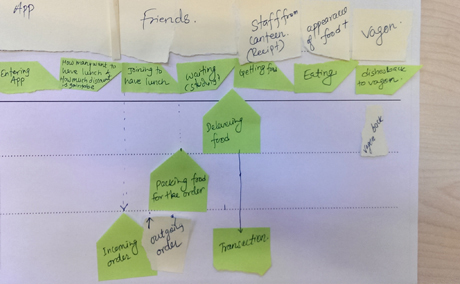 App
Friends.
Staff from
canteen.
(Recipt)
appearance
of food +
Vagon.
Entering
App
How many want to
have lunch &
How much discount
Joining to
have lunch
Waiting
(Study)
Getting food
Eating
dishes back
to vagon.
Delivering
food
back
Packing food
for the order
Incoming
order
outgoing
order
Transection.